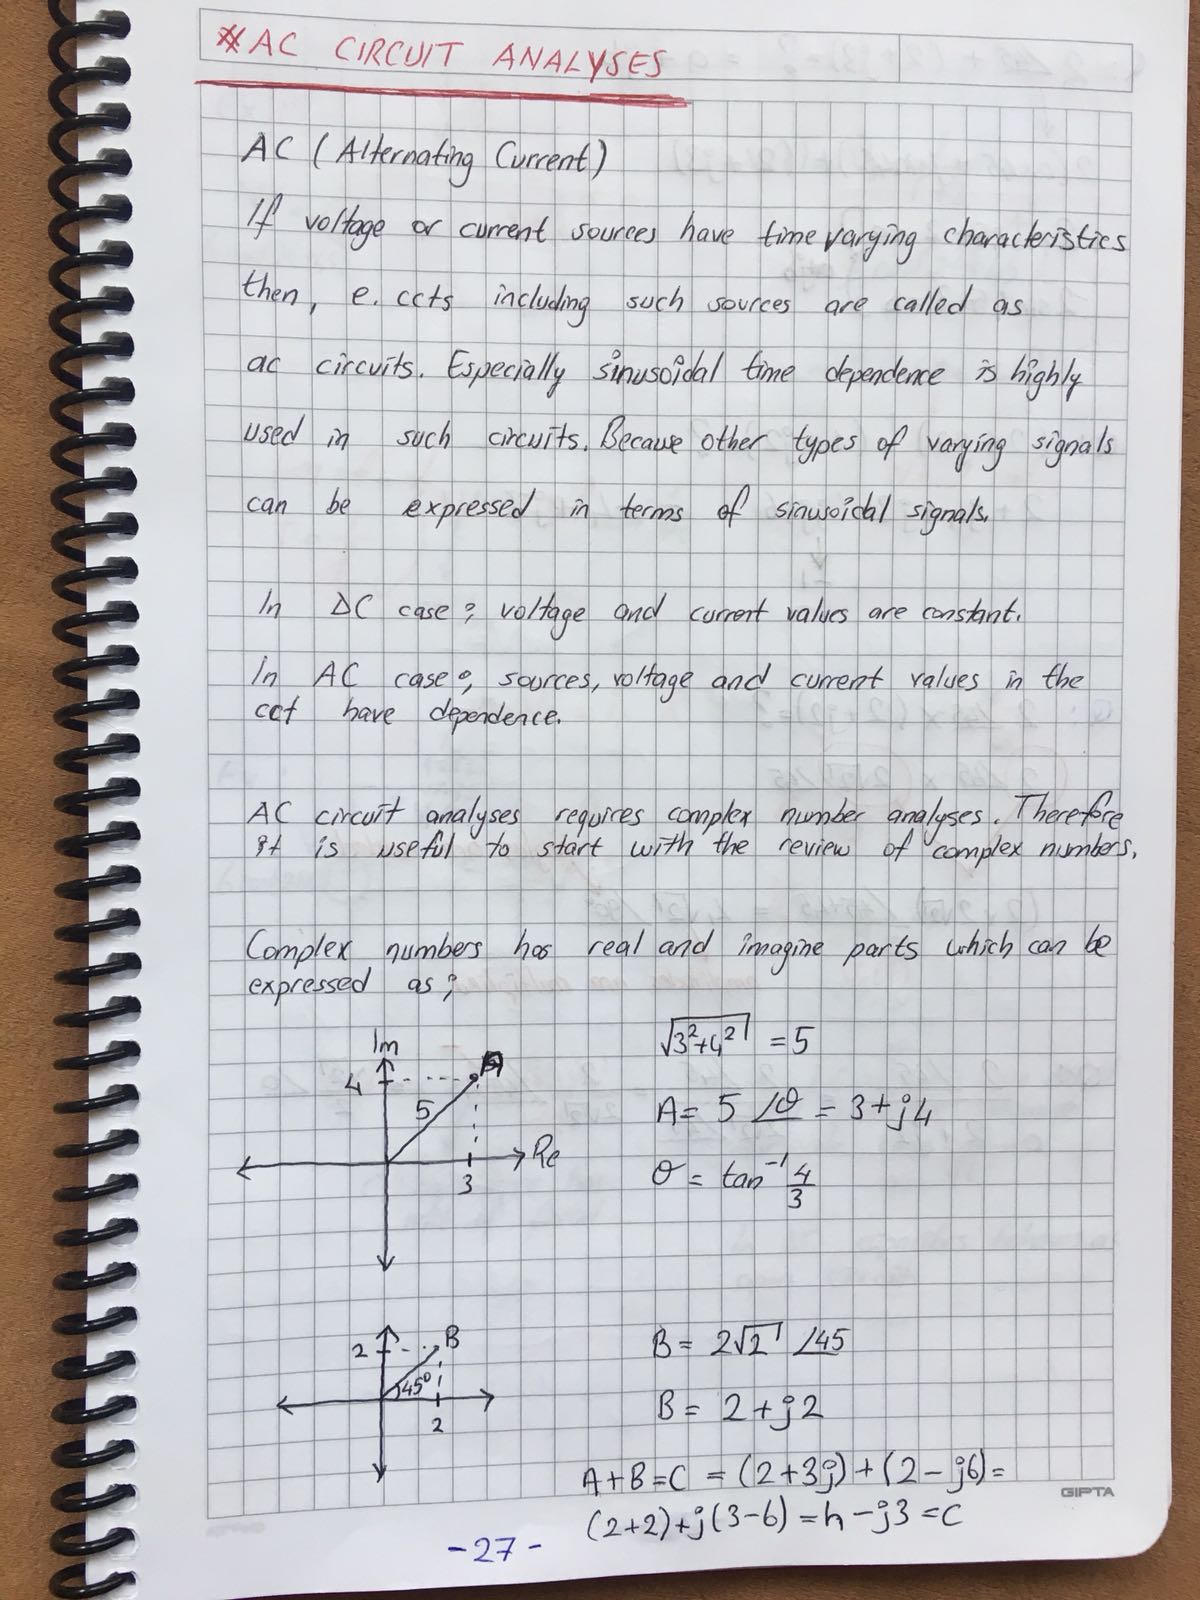 * AC CIRCUIT ANALYSES
AC (Alternating Current)
If voltage or current sources have time varying characteristics
then, e. ccts including such sources are called as
ac circuits. Especially sinusoidal time dependence is highly
used in such circuits. Because other types of varying signals
can be expressed in terms of sinusoidal signals.
In DC case; voltage and current values are constant.
In AC case; sources, voltage and current values in the
cct have dependence.
AC circuit analyses requires complex number analyses. Therefore
it is useful to start with the review of complex numbers.
Complex numbers has real and imagine parts which can be
expressed as;
Im
4
A
5
Re
3
√3²+4² = 5
A = 5 ∠θ = 3+j4
θ = tan⁻¹ 4/3
2
B
45°
2
B = 2√2 ∠45
B = 2+j2
A+B=C = (2+3j)+(2-j6)=
(2+2)+j(3-6) = 4-j3 = C
GIPTA
-27-